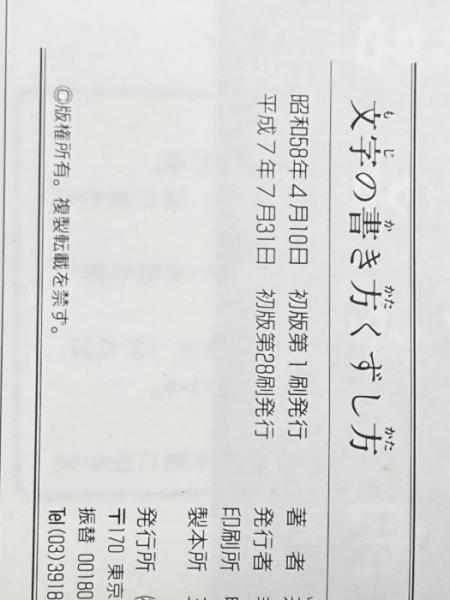 文字の書き方くずし方
もじ
か
かた
かた
昭和58年4月10日 初版第1刷発行
平成7年7月31日 初版第28刷発行
著 者
発行者
印刷所
製本所
発行所
〒170 東京
振替 00180
Tel(03)3918
©版権所有。複製転載を禁ず。